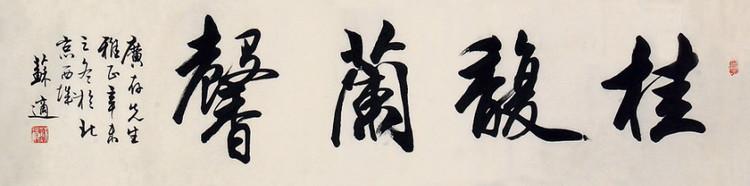 桂馥蘭馨
廣存先生
雅正辛未
之冬於北
京西城
蘇適